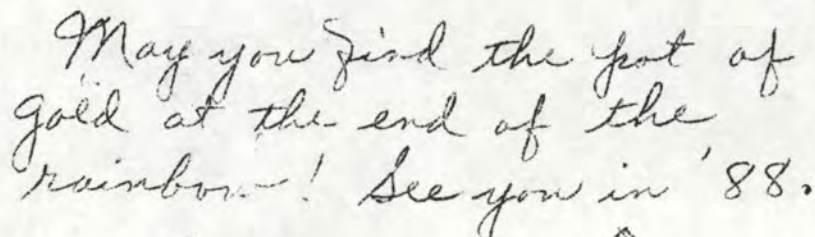 May you find the pot of
gold at the end of the
rainbow! See you in '88.